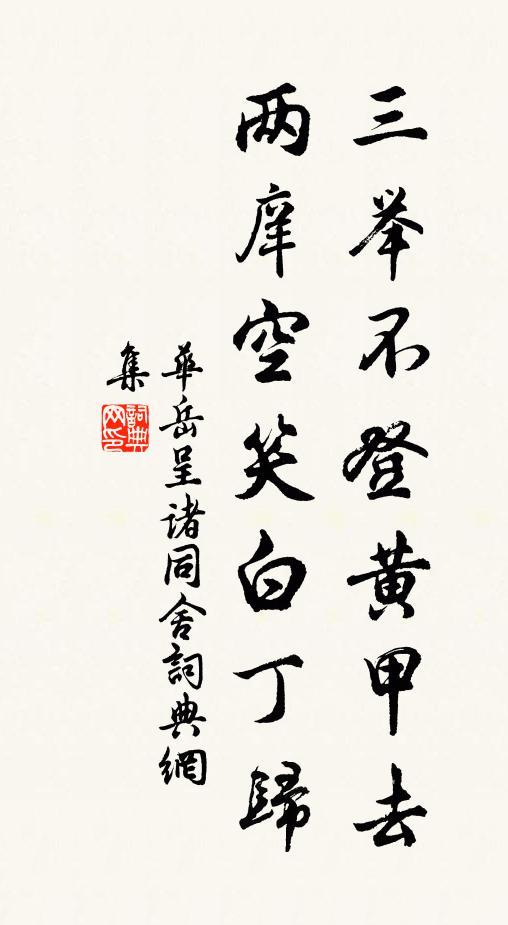 三举不登黄甲去
两庠空笑白丁歸
華岳呈诸同舍詞典網
集
詞典网印